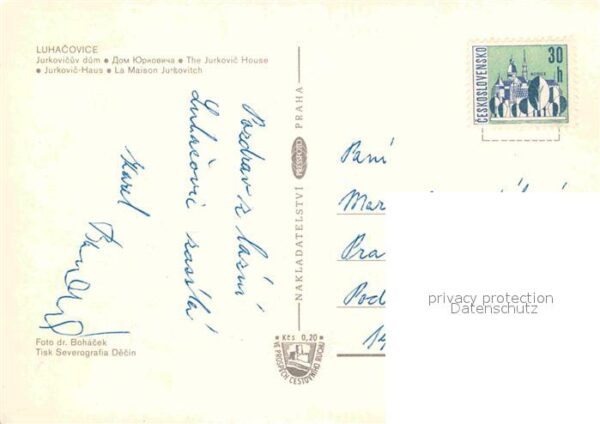 LUHAČOVICE
Jurkovičův dům ● Дом Юрковича ● The Jurkovič House
● Jurkovič-Haus ● La Maison Jurkovitch
ČESKOSLOVENSKO
30
h
NAKLADATELSTVÍ PRESSFOTO PRAHA
Pozdrav z lázní
Luhačovic zasílá
Karel
Paní
Mar
Pra
Pod
14
privacy protection
Datenschutz
Kčs 0,20
VE PROSPĚCH CESTOVNÍHO RUCHU
Foto dr. Boháček
Tisk Severografia Děčín